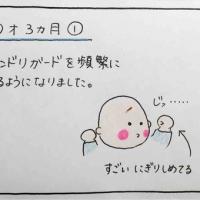 才3ヵ月①
ンドリガードを頻繁に
るようになりました。
じッ……
すごい にぎりしめてる